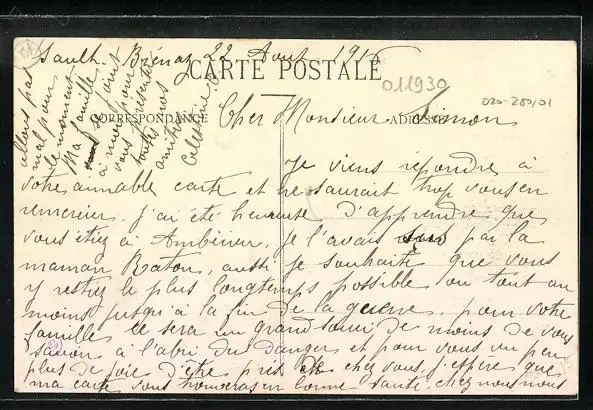 Sault-Brénaz 22 Aout 1915
CARTE POSTALE
011930
020-280/01
CORRESPONDANCE
ADRESSE
Cher Monsieur Simon
Je viens répondre à
votre aimable carte et ne saurait trop vous en
remercier. J'ai été heureuse d'apprendre que
vous étiez à Ambérieu, je l'avais par la
maman Raton, aussi je souhaite que vous
y restiez le plus longtemps possible ou tout au
moins jusqu'à la fin de la guerre. pour votre
famille ce sera un grand souci de moins de vous
savoir à l'abri du danger et pour vous un peu
plus de joie d'être près de chez vous, j'espère que
ma carte vous trouvera en bonne santé, chez nous nous
allons pas
mal pour
le moment.
Ma famille
se joint
à moi pour
vous présenter
toutes nos
amitiés
Célestine